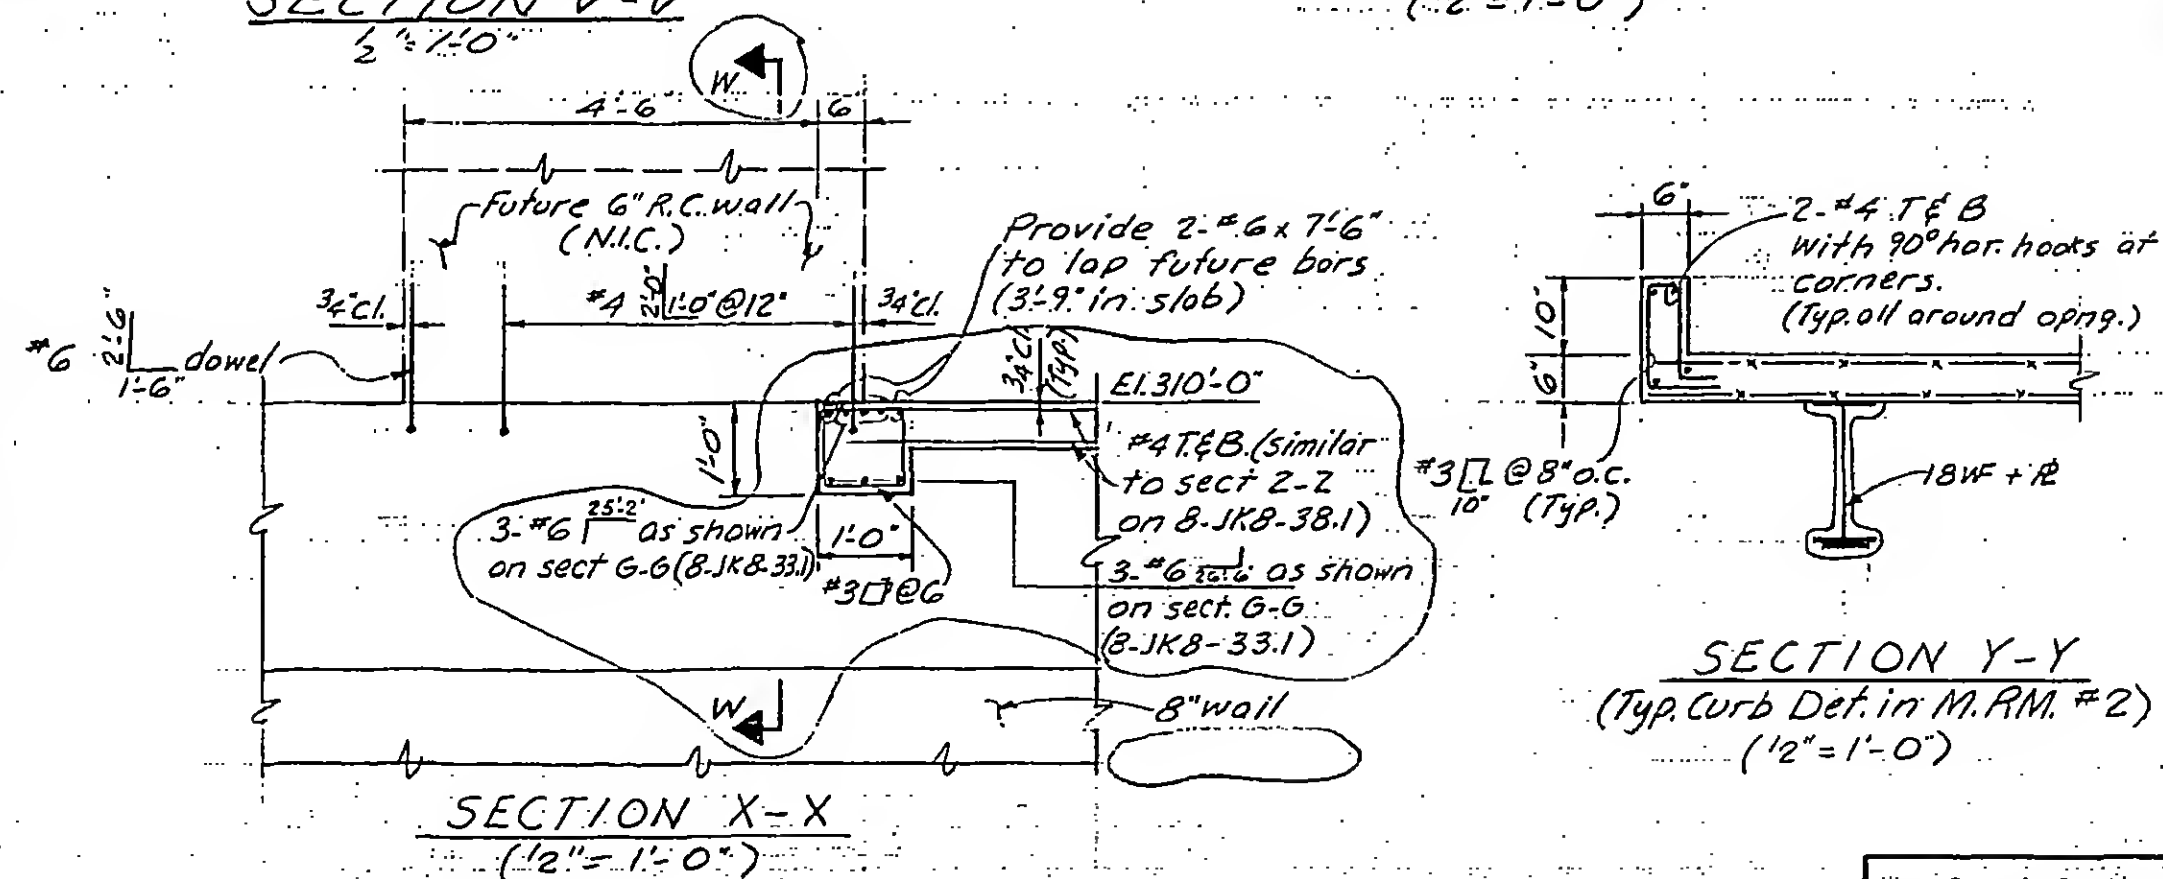 SECTION V-V
1/2"=1'-0"
(1/2"=1'-0")
W
4'-6"
6"
Future 6" R.C. wall
(N.I.C.)
Provide 2-#6 x 7'-6"
to lap future bars
(3'-9" in slab)
3/4"cl.
#4 2'-0" 1'-0" @12"
3/4"cl.
#6 2'-6" 1'-6" dowel
3/4"Cl. (Typ.)
El.310'-0"
1'-0"
#4 T&B (similar
to sect Z-Z
on 8-JK8-38.1)
3-#6 25'-2" as shown
on sect G-G (8-JK8-33.1)
1'-0"
#3 @6
3-#6 26'-6" as shown
on sect. G-G
(8-JK8-33.1)
W
8" wall
SECTION X-X
(1/2"=1'-0")
6"
2-#4 T&B
with 90° hor. hooks at
corners.
(Typ. all around opng.)
10"
6"
#3 @ 8" o.c.
10" (Typ.)
18WF + PL
SECTION Y-Y
(Typ. Curb Det. in M.RM. #2)
(1/2"=1'-0")